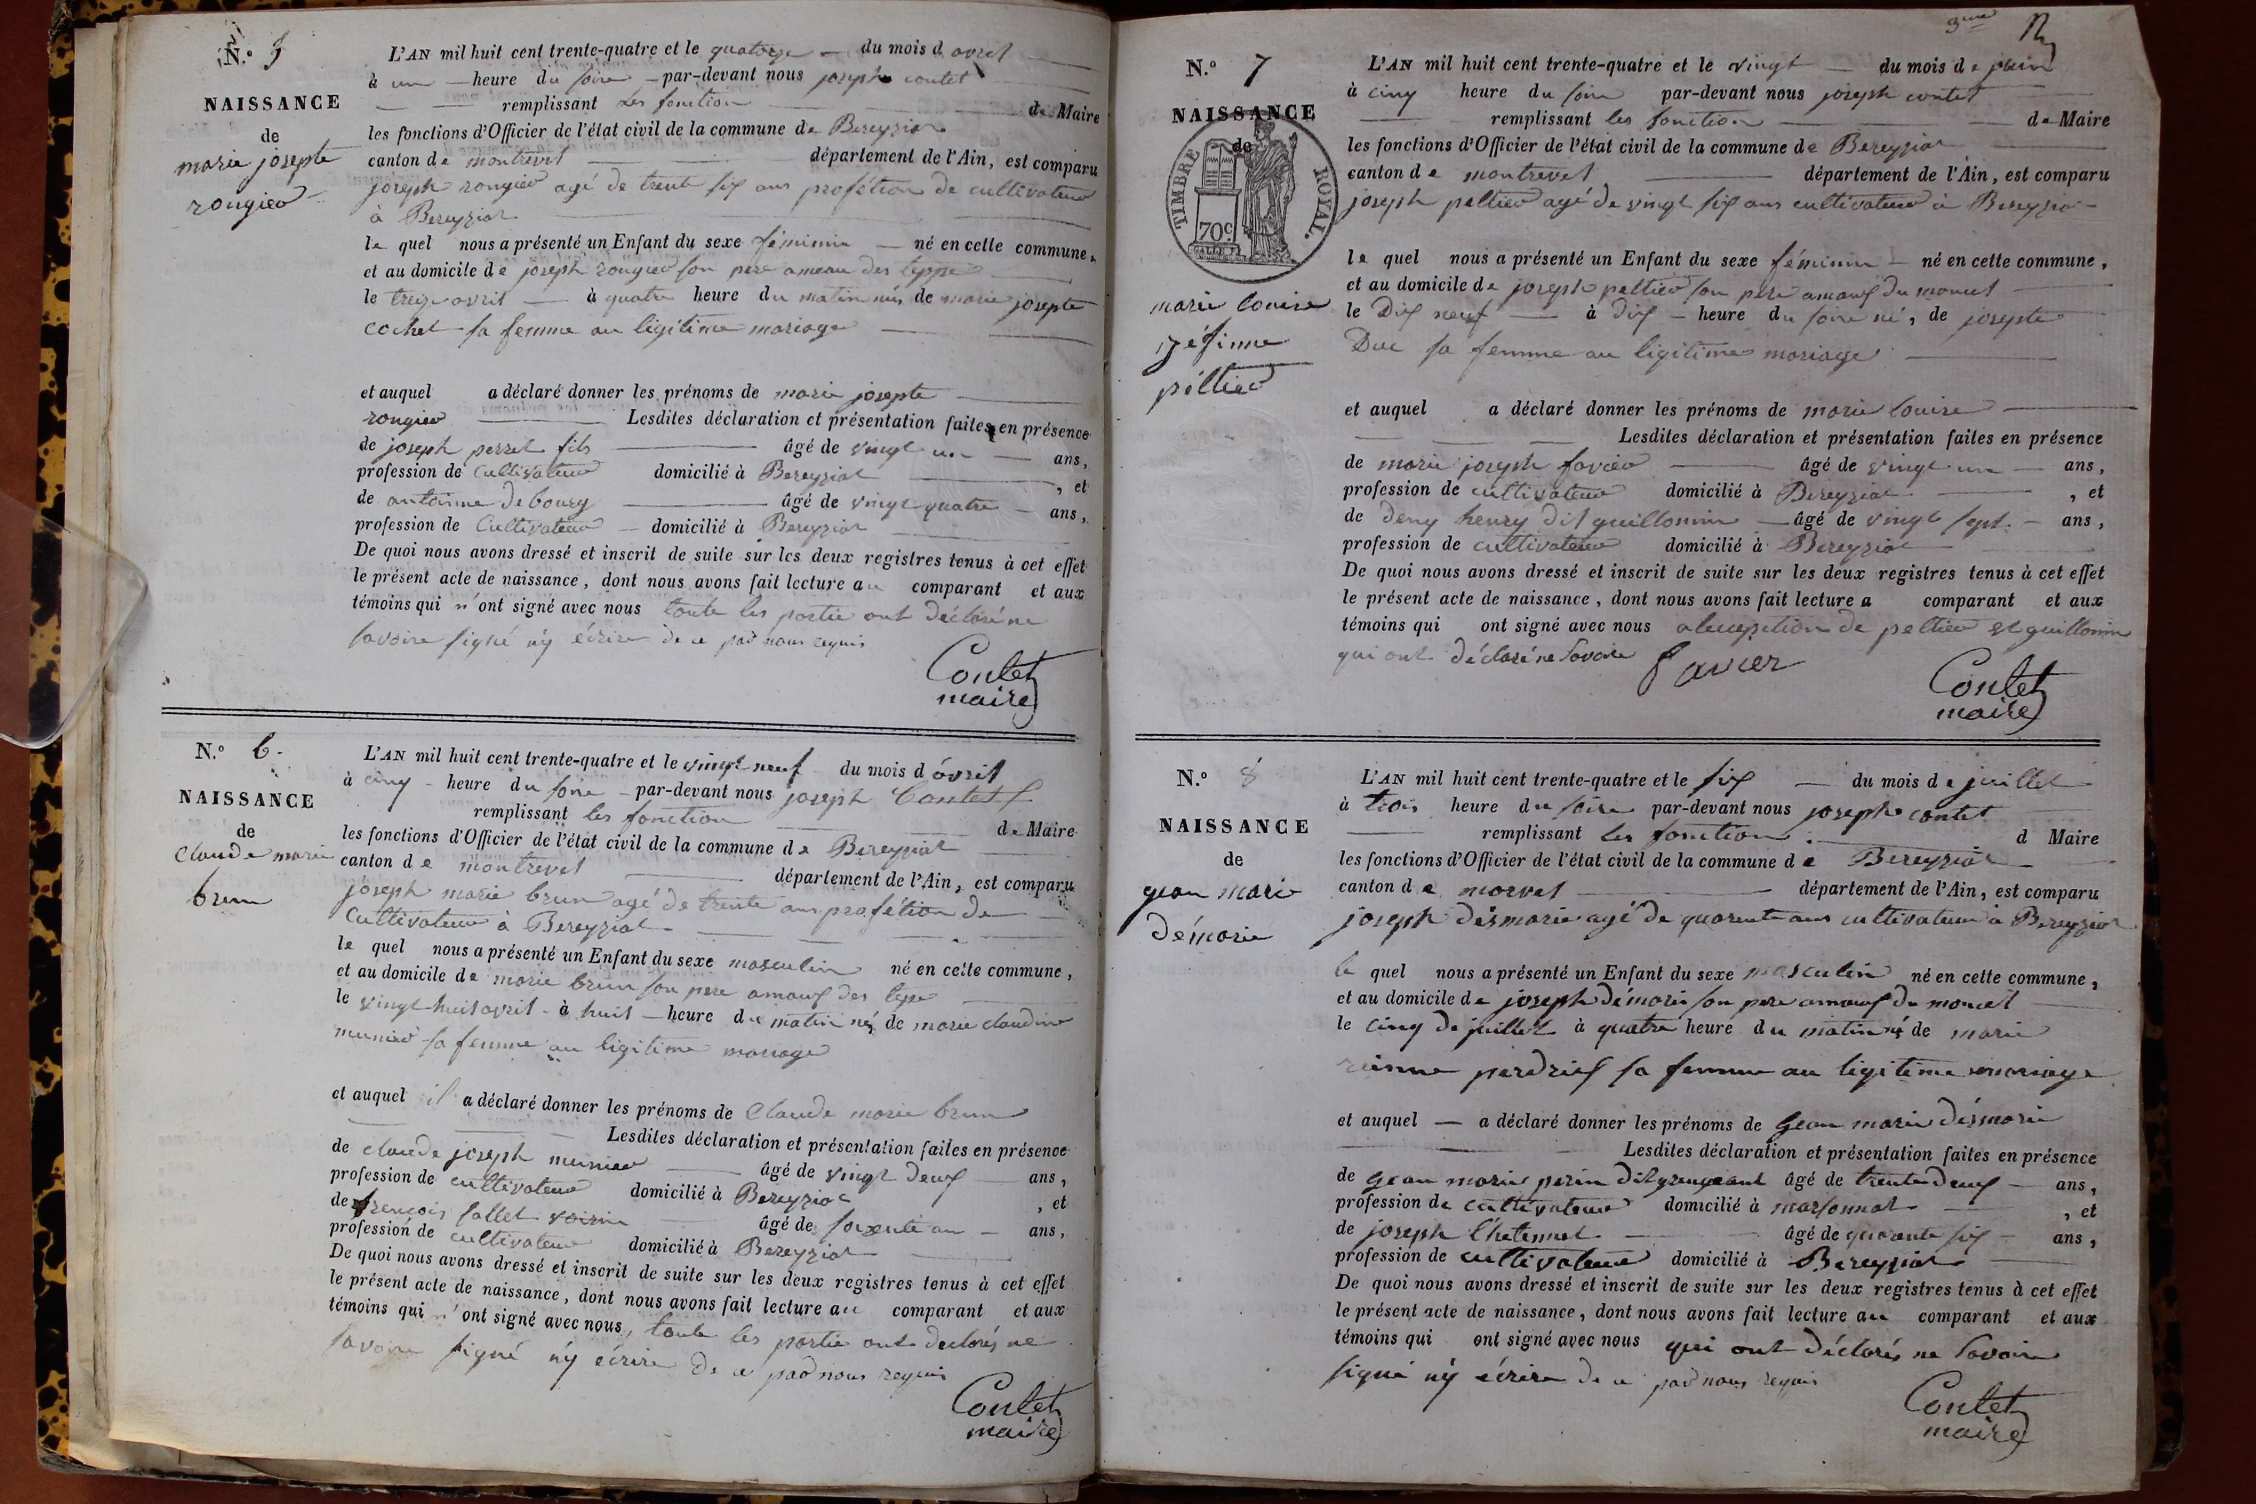 N.° 5
NAISSANCE
de
marie josepte
rongier
L'AN mil huit cent trente-quatre et le quatorze du mois d avril
à un heure du soire par-devant nous joseph contet
remplissant les fonction de Maire
les fonctions d'Officier de l'état civil de la commune de Bereyziat
canton de montrevel département de l'Ain, est comparu
joseph rongier agé de trente six ans profétion de cultivateur
à Bereyziat
le quel nous a présenté un Enfant du sexe féminin né en cette commune,
et au domicile de joseph rongier son pere ameau des teppe
le treize avril à quatre heure du matin né, de marie josepte
cochet sa femme au ligitime mariage
et auquel a déclaré donner les prénoms de marie josepte
rongier Lesdites déclaration et présentation faites en présence
de joseph perret fils âgé de vingt un ans,
profession de cultivateur domicilié à Bereyziat , et
de antoinne debourg âgé de vingt quatre ans,
profession de Cultivateur domicilié à Bereyziat
De quoi nous avons dressé et inscrit de suite sur les deux registres tenus à cet effet
le présent acte de naissance, dont nous avons fait lecture au comparant et aux
témoins qui n'ont signé avec nous toute les partie ont déclaré ne
savoire signé n'y écrire de ce par nous requis
Contet
maire
N.° 6
NAISSANCE
de
Claude marie
brun
L'AN mil huit cent trente-quatre et le vingt-neuf du mois d avril
à cinq heure du soire par-devant nous joseph Contet
remplissant les fonction de Maire
les fonctions d'Officier de l'état civil de la commune de Bereyziat
canton de montrevel département de l'Ain, est comparu
joseph marie brun agé de trente ans profétion de
Cultivateur à Bereyziat
le quel nous a présenté un Enfant du sexe masculin né en cette commune,
et au domicile de marie brun son pere amaux des tepe
le vingt-huit avril à huit heure du matin né, de marie claudine
munier sa femme au ligitime mariage
et auquel il a déclaré donner les prénoms de Claude marie brun
Lesdites déclaration et présentation faites en présence
de claude joseph munier âgé de vingt deux ans,
profession de cultivateur domicilié à Bereyziat , et
de frençois sallet voisin âgé de soixente an ans,
profession de cultivateur domicilié à Bereyziat
De quoi nous avons dressé et inscrit de suite sur les deux registres tenus à cet effet
le présent acte de naissance, dont nous avons fait lecture au comparant et aux
témoins qui n'ont signé avec nous, toute les partie ont declarés ne
savoire signé n'y écrire de ce par nous requis
Contet
maire
3me
N.° 7
NAISSANCE
de
TIMBRE ROYAL.
70c.
marie louise
péltier
L'AN mil huit cent trente-quatre et le vingt du mois de juin
à cinq heure du soire par-devant nous joseph contet
remplissant les fonction de Maire
les fonctions d'Officier de l'état civil de la commune de Bereyziat
canton de montrevel département de l'Ain, est comparu
joseph peltier agé de vingt six ans cultivateur à Bereyziat
le quel nous a présenté un Enfant du sexe féminin né en cette commune,
et au domicile de joseph peltier son père amaux du moncel
le Dix neuf à dix heure du soire né, de josepte
Duc sa femme au ligitime mariage
et auquel a déclaré donner les prénoms de marie louise
Lesdites déclaration et présentation faites en présence
de marie joseph favier âgé de vingt un ans,
profession de cultivateur domicilié à Bereyziat , et
de deny henry dit guillomin âgé de vingt sept ans,
profession de cultivateur domicilié à Bereyziat
De quoi nous avons dressé et inscrit de suite sur les deux registres tenus à cet effet
le présent acte de naissance, dont nous avons fait lecture a comparant et aux
témoins qui ont signé avec nous a lexception de peltier et guillomin
qui ont déclaré ne savoire Favier
Contet
maire
N.° 8
NAISSANCE
de
gean marie
démarie
L'AN mil huit cent trente-quatre et le six du mois de juillet
à trois heure du soire par-devant nous joseph contet
remplissant les fonction d Maire
les fonctions d'Officier de l'état civil de la commune de Bereyziat
canton de département de l'Ain, est comparu
joseph désmarie agé de quarente ans cultivateur à Bereyziat
le quel nous a présenté un Enfant du sexe masculin né en cette commune,
et au domicile de joseph démarie son pere amaux du moncel
le cinq de juillet à quatre heure du matin né de marie
perdrix sa femme au ligitime mariage
et auquel a déclaré donner les prénoms de gean marie désmarie
Lesdites déclaration et présentation faites en présence
de gean marie perin dit âgé de trente deux ans,
profession de cultivateur domicilié à marsonnat , et
de joseph âgé de quarente six ans,
profession de cultivateur domicilié à Bereyziat
De quoi nous avons dressé et inscrit de suite sur les deux registres tenus à cet effet
le présent acte de naissance, dont nous avons fait lecture au comparant et aux
témoins qui ont signé avec nous qui ont déclarés ne savoire
signé n'y écrire de ce par nous requis
Contet
maire